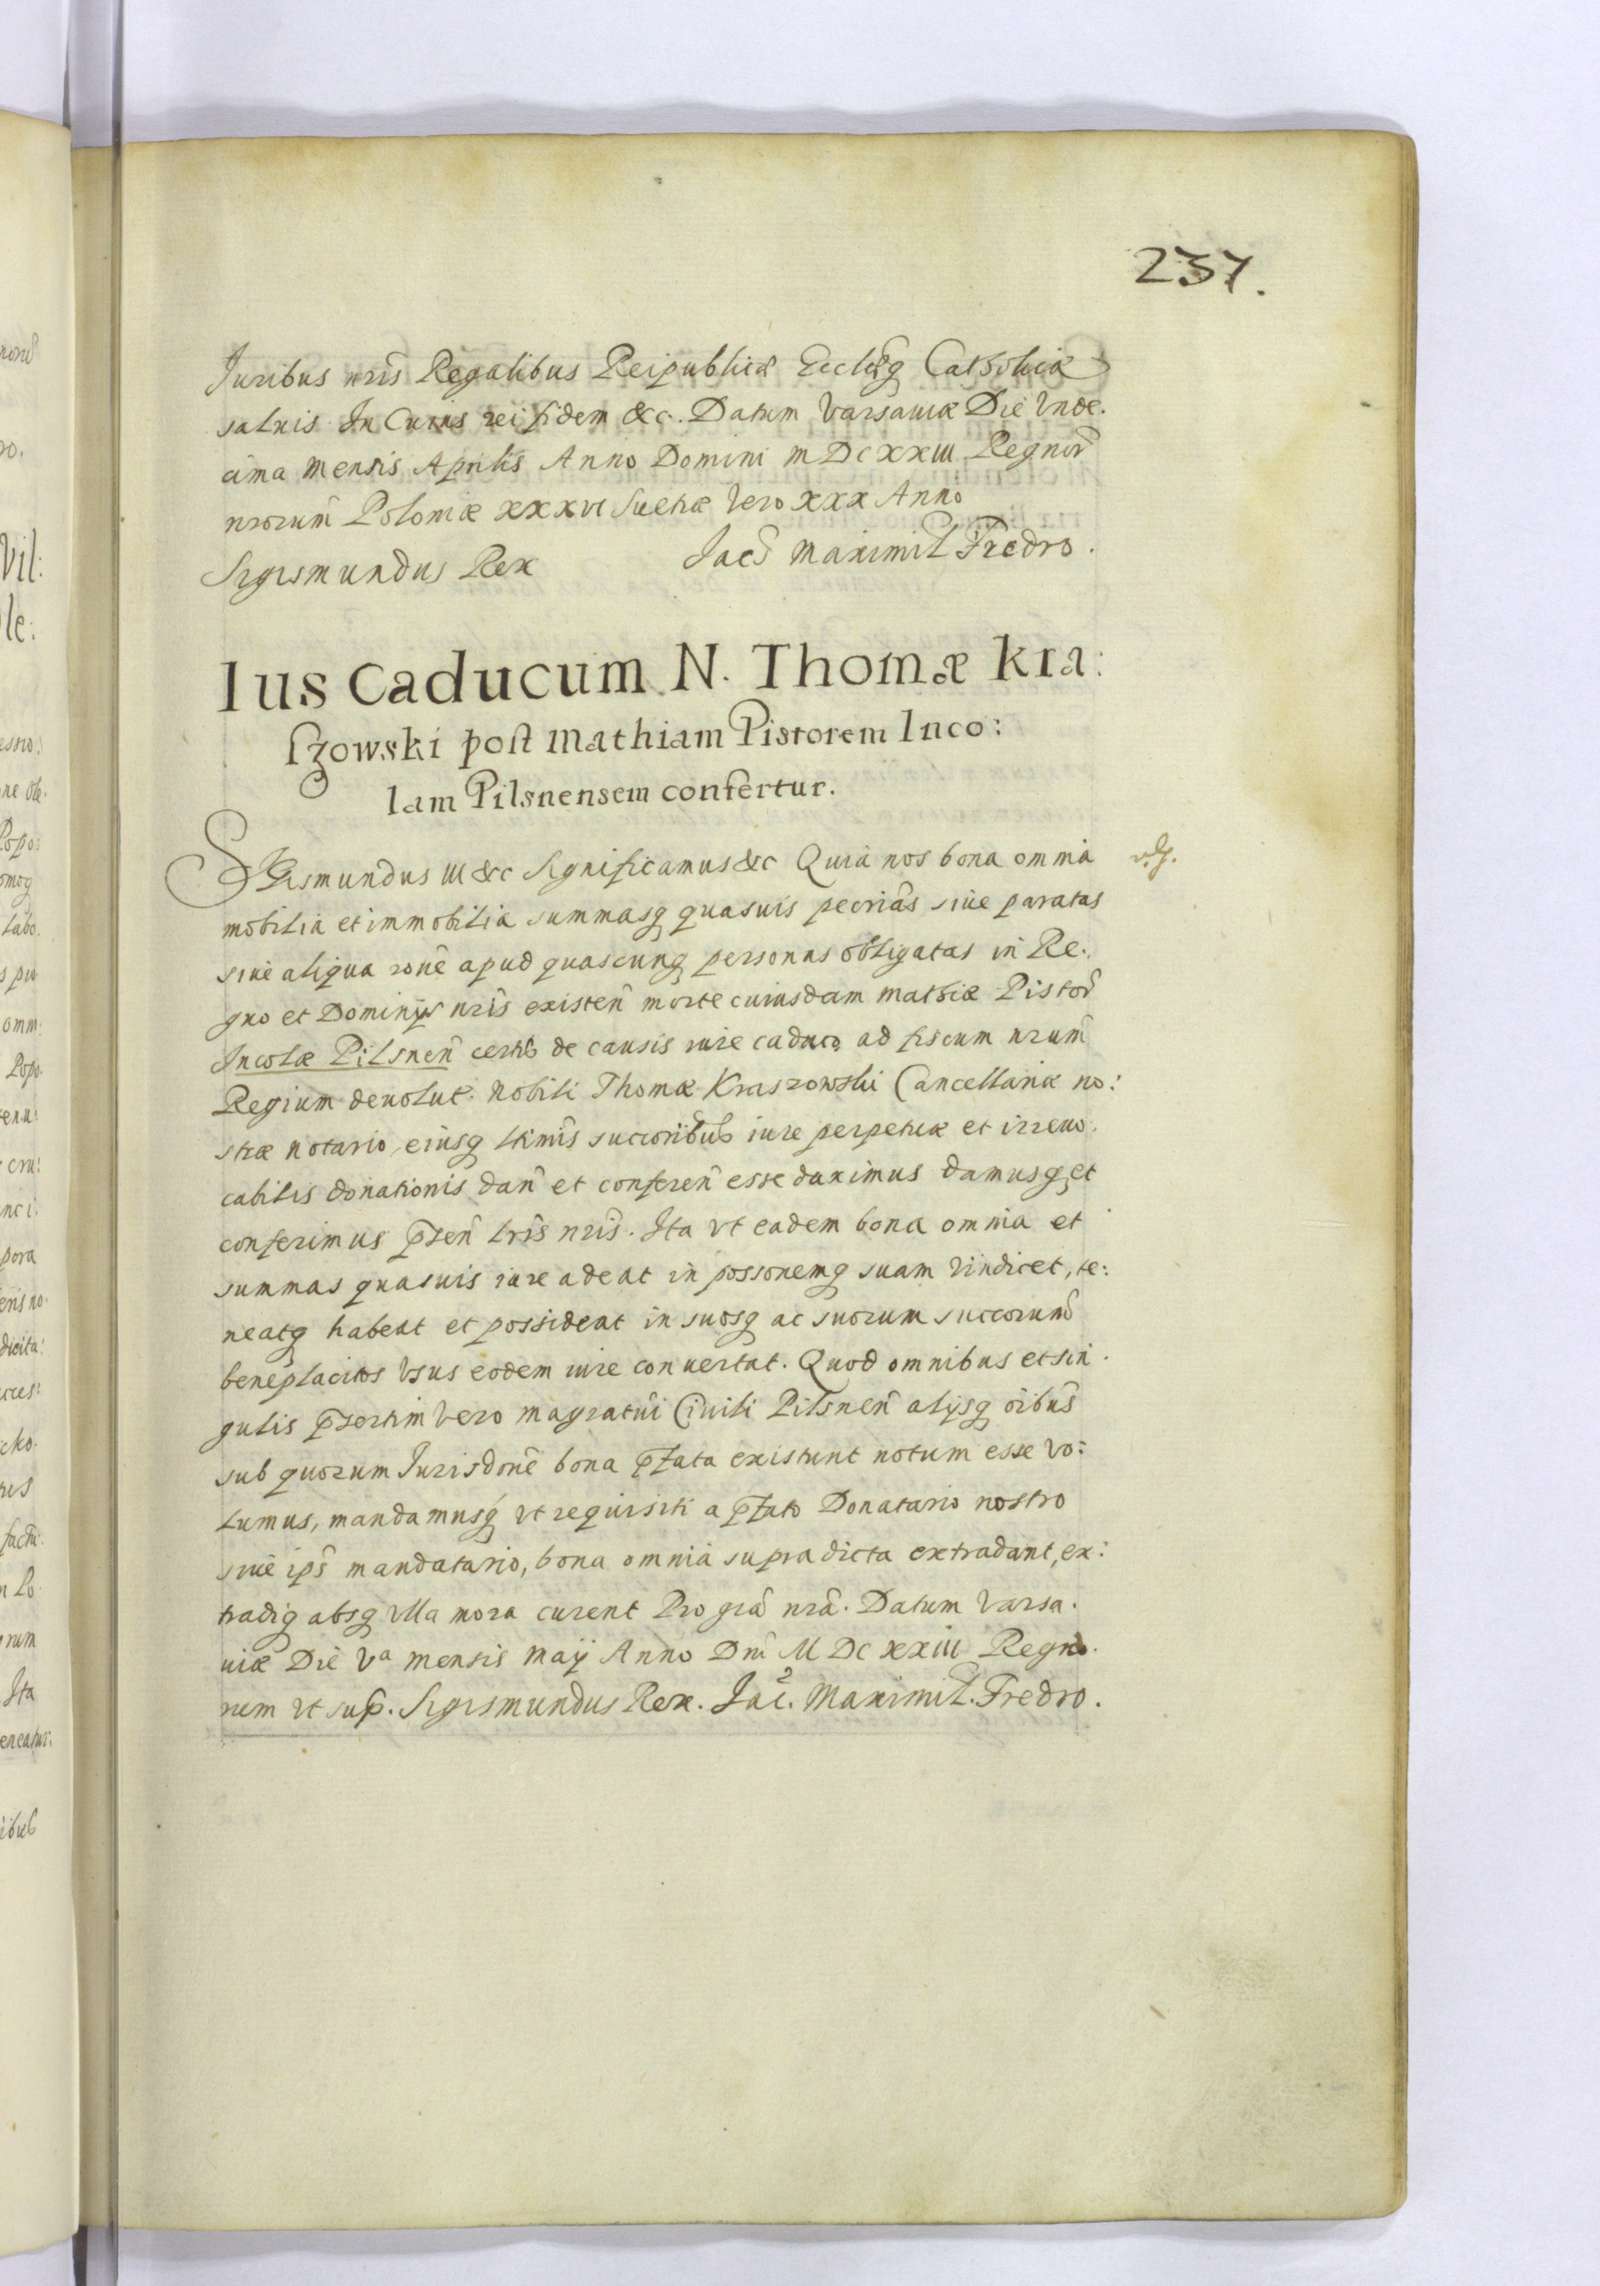 237.
Juribus nris Regalibus Reipublicæ Ecclæq Catholicæ
saluis In Cuius rei fidem &c. Datum Varsauiæ Die Vnde.
cima Mensis Aprilis Anno Domini MDCXXIII Regnor̃
nrorum̃ Poloniæ XXXVI Suetiæ Vero XXX Anno
Sigismundus Rex Jacỡ Maximil Fredro.
Ius Caducum N. Thomæ Kra:
szowski post Mathiam Pistorem Inco:
lam Pilsnensem confertur.
Sigismundus III &c Significamus &c Quia nos bona omnia
mobilia et immobilia summasq quasuis pecriãs siue paratas
siue aliqua ronẽ apud quascunq personas obligatas in Re:
gno et Dominijs nrĩs existeñ morte cuiusdam Mathiæ Pistor̃
Incolæ Pilsneñ certis de causis iure caduco ad fiscum nrum̃
Regium deuolut. Nobili Thomæ Kraszowski Cancellariæ no:
stræ notario, eiusq ltimĩs succoribus iure perpetuæ et irreuo.
cabilis donationis dañ et confereñ esse duximus damusq et
conferimus p̃señ lrĩs nrĩs. Ita vt eadem bona omnia et
summas quasuis iure adeat in possonemq suam vindicet, te:
neatq habeat et possideat in suosq ac suorum succorum̃
beneplacitos vsus eodem iure conuertat. Quod omnibus et sin.
gulis p̃sertim vero magratuĩ Ciuili Pilsneñ alijsq oĩbus
sub quorum Jurisdonẽ bona p̃fata existunt notum esse vo:
lumus, mandamusq vt requisiti a p̃fato Donatario nostro
siue ips̃ mandatario, bona omnia supradicta extradant, ex:
tradiq absq vlla mora curent Pro grã nrã. Datum Varsa.
uiæ Die Va mensis Maij Anno Dnĩ MDCXXIII Regno.
rum vt sup̃. Sigismundus Rex. Jac. Maximil. Fredro.